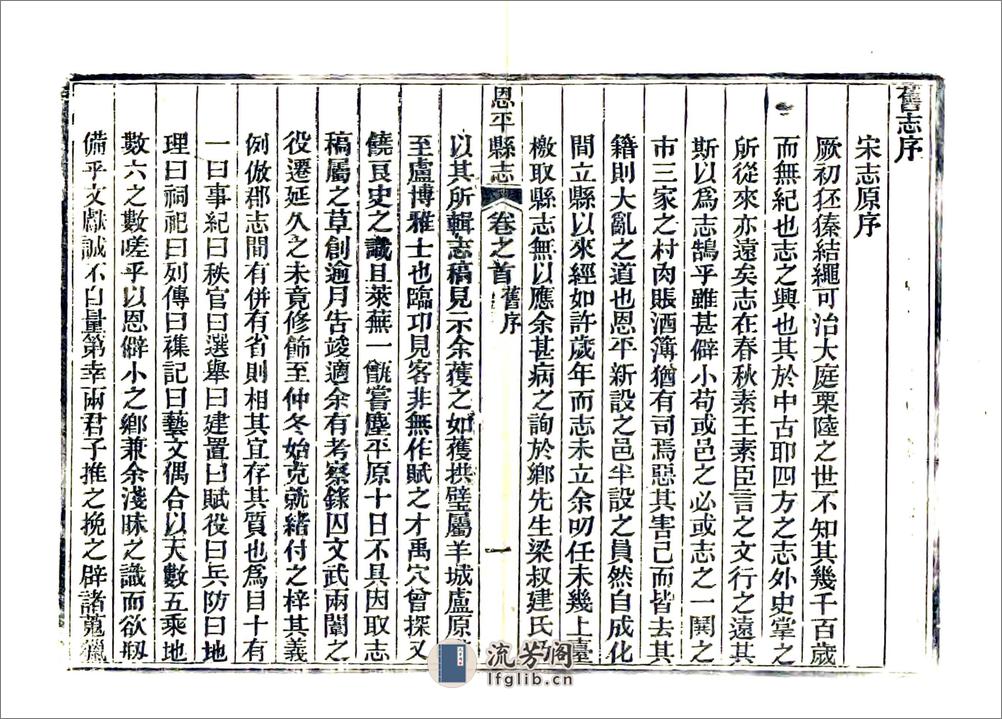 舊志序
宋志原序
厥初狉獉結繩可治大庭栗陸之世不知其幾千百歲
而無紀也志之興也其於中古耶四方之志外史掌之
所從來亦遠矣志在春秋素王素臣言之文行之遠其
斯以爲志鵠乎雖甚僻小苟或邑之必或志之一鬨之
市三家之村肉賬酒簿猶有司焉惡其害己而皆去其
籍則大亂之道也恩平新設之邑半設之員然自成化
間立縣以來經如許歲年而志未立余叨任未幾上臺
檄取縣志無以應余甚病之詢於鄉先生梁叔建氏
恩平縣志 卷之首 舊序 一
以其所輯志稿見示余獲之如獲拱璧屬羊城盧原
至盧博雅士也臨邛見客非無作賦之才禹穴曾探又
饒良史之識且萊蕪一甑嘗塵平原十日不具因取志
稿屬之草創逾月告竣適余有考察錄囚文武兩闈之
役遷延久之未竟修飾至仲冬始克就緒付之梓其義
例倣郡志間有併有省則相其宜存其質也爲目十有
一曰事紀曰秩官曰選舉曰建置曰賦役曰兵防曰地
理曰祠祀曰列傳曰襍記曰藝文偶合以天數五乘地
數六之數嗟乎以恩僻小之鄉兼余淺昧之識而欲剏
備乎文獻誠不自量第幸兩君子推之挽之辟諸蒐獵
流芳阁
lfglib.cn